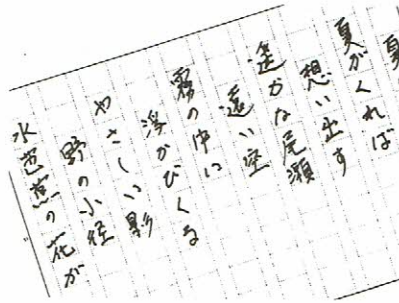 夏
夏がくれば
想い出す
遥かな尾瀬
遠い空
霧の中に
浮かびくる
やさしい影
野の小径
水芭蕉の花が